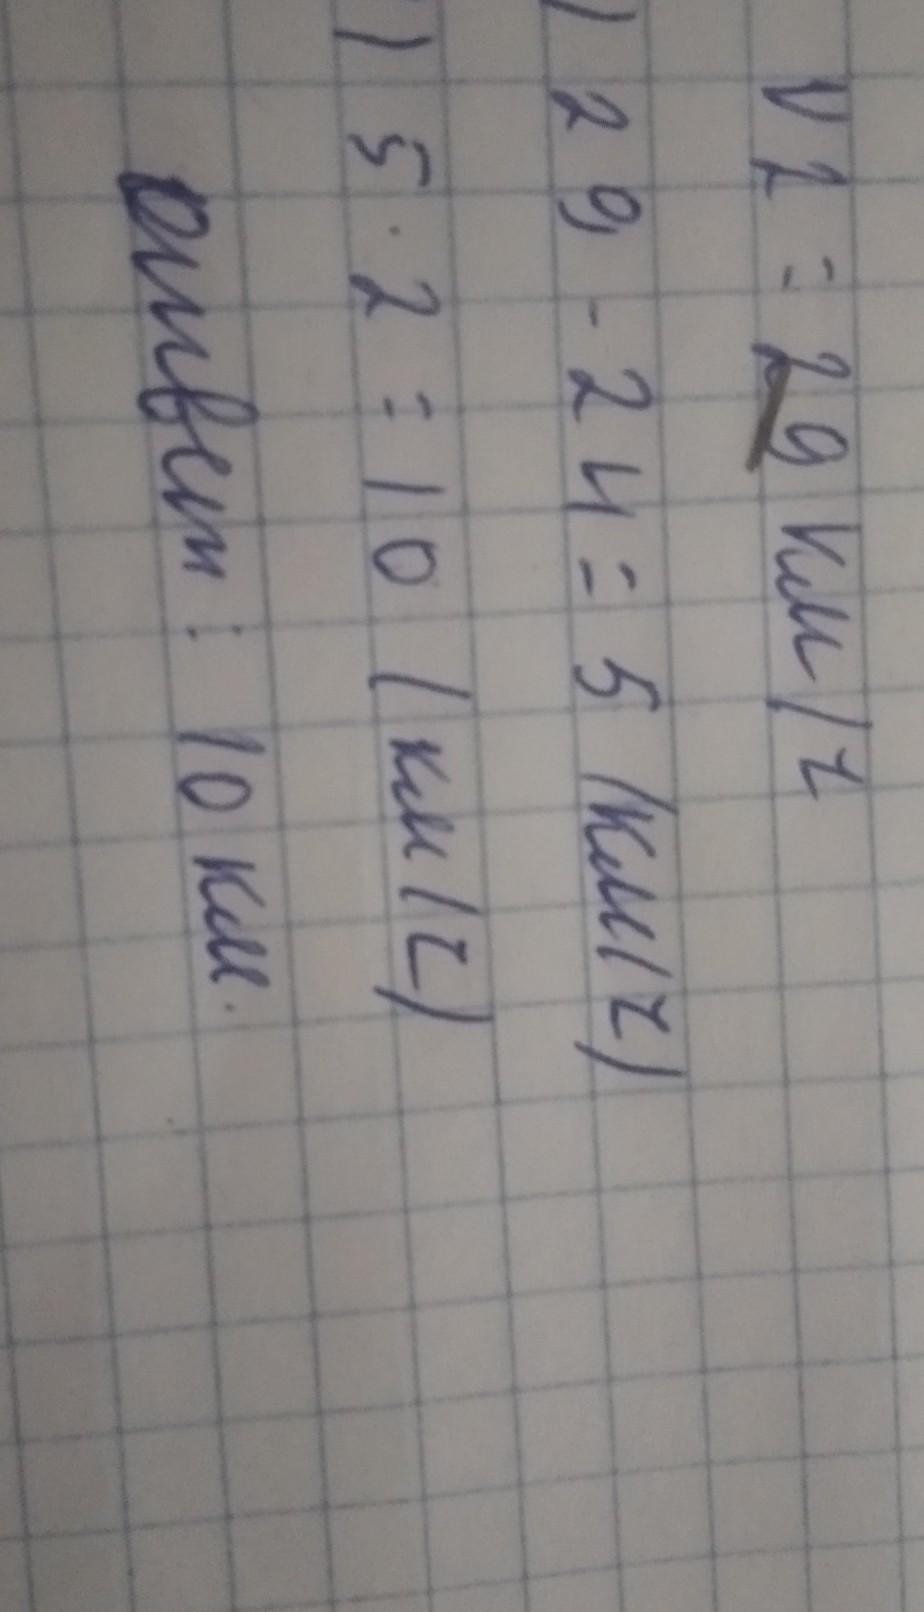 V2 = 29 км/ч
) 29 - 24 = 5 (км/ч)
) 5 · 2 = 10 (км/ч)
Ответ: 10 км.